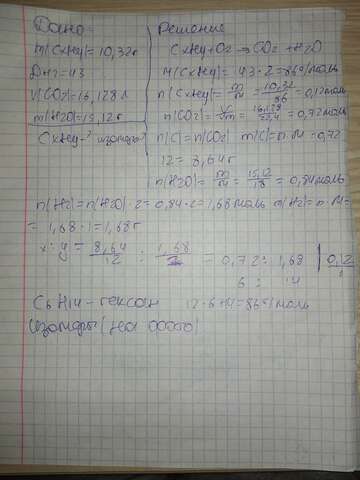 Дано
m(CxHy)=10,32г
DH2=43
V(CO2)=16,128л
m(H2O)=15,12г
CxHy-? изомеры?
Решение
CxHy+O2→CO2+H2O
M(CxHy)=43·2=86г/моль
n(CxHy)=m/M=10,32/86=0,12моль
n(CO2)=V/Vm=16,128/22,4=0,72моль
n(C)=n(CO2) m(C)=n·M=0,72
12=8,64г
n(H2O)=m/M=15,12/18=0,84моль
n(H2)=n(H2O)·2=0,84·2=1,68моль m(H2)=n·M=
=1,68·1=1,68г
x:y=8,64/12:1,68/1=0,72:1,68 |0,12
6:14
C6H14-гексан 12·6+14=86г/моль
Изомеры(на фото)